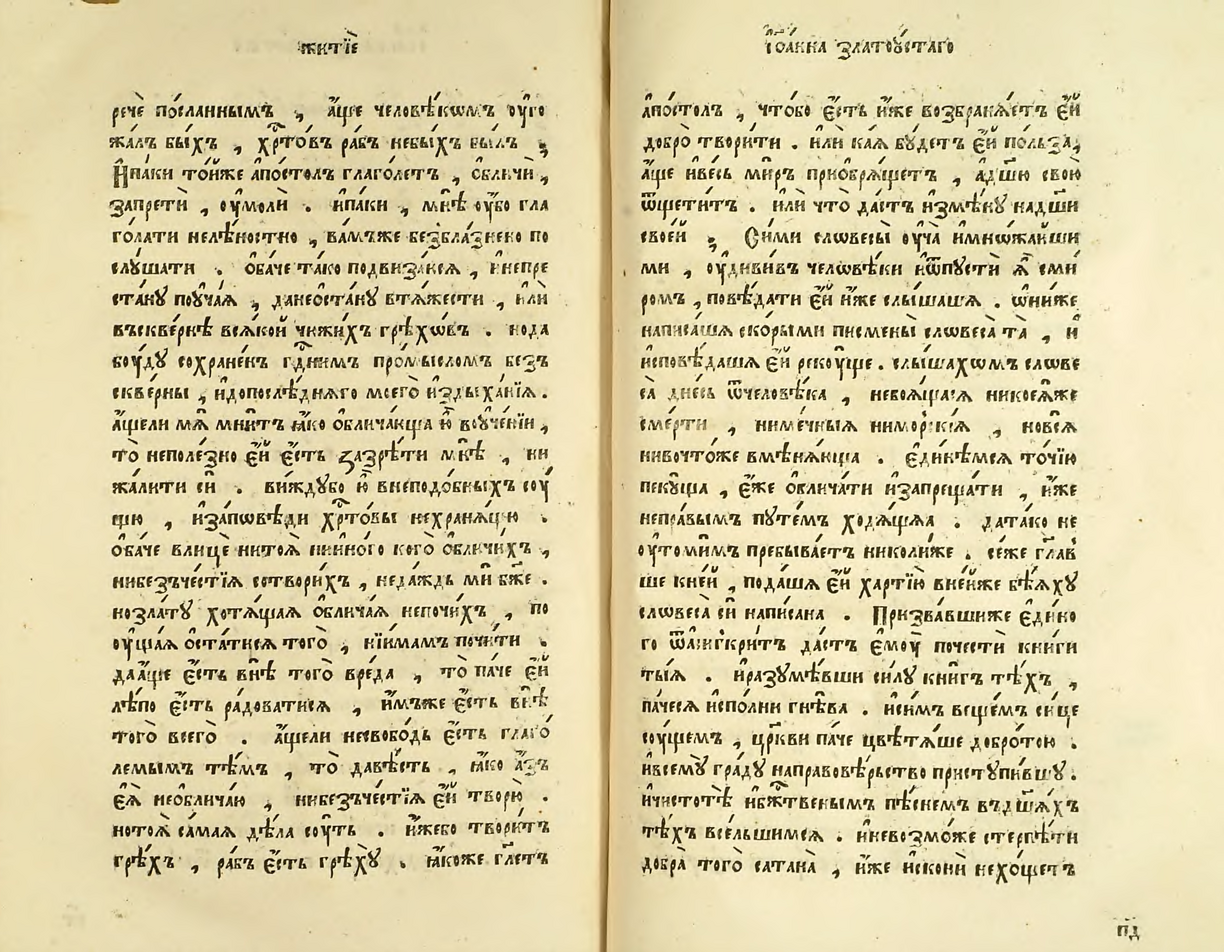 житїѐ
речѐ по́сланнымъ , а҆́ще человѣ́кѡмъ оу҆го
жа́лъ бы́хъ , хрⷭ҇то́въ ра́бъ небы́хъ бы́лъ ,
Ипа́ки то́йже апо́столъ глаго́летъ , ѡ҆бличѝ ,
запретѝ , оу҆молѝ . и҆па́ки , мнѣ̀ оу҆́бо гла
го́лати нелѣ́ностно , ва́мъже безбла́знено по
слꙋ́шати . ѻ҆ба́че та́ко подвиза́юся , и҆непре
ста́нꙋ поꙋча́ѧ , данеѡ҆ста́нꙋ втѧ́жести , и҆лѝ
въскве́рнѣ всѧ́кой чижи́хъ грѣхѡ́въ . нода
бꙋ́дꙋ сохране́нъ гдⷭ҇нимъ про́мысломъ безъ
скве́рны , и҆допослѣ́днѧго моего̀ и҆здыха́нїѧ .
а҆́щели мѧ̀ мни́тъ ꙗ҆́ко ѡ҆блича́юща ю҆̀ воꙋче́нїи ,
то̀ неполе́зно е҆́й е҆́сть зазрѣ́ти мнѣ̀ , ни
жа́лити сѝ . ви́ждꙋбо ю҆̀ внеподо́бныхъ сꙋ́
щꙋ , и҆за́повѣди хрⷭ҇то́вы нехранѧ́щꙋ .
ѻ҆ба́че влицѐ нитоѧ̀ нийного кого̀ ѡ҆бличи́хъ ,
нибезъче́стїѧ сотвори́хъ , неда́ждь мѝ бж҃е .
нозла́тꙋ хотѧ́щаѧ ѡ҆блича́ѧ непочи́хъ , по
ꙋща́ѧ ѡ҆ста́тисѧ того̀ , нїи́мамъ почи́ти .
даа҆́ще е҆́сть внѣ̀ того̀ вре́да , то̀ па́че е҆́й
лѣ́по е҆́сть ра́доватисѧ , и҆́мъже е҆́сть внѣ̀
того̀ всего̀ . а҆́щели несвобо́дь е҆́сть глаго́
лемымъ тѣ́мъ , то̀ да́вѣсть , ꙗ҆́ко а҆́зъ
е҆ѧ̀ необлича́ю , нибезъче́стїѧ е҆́й творю̀ .
нотоѧ̀ са́маѧ дѣ́ла сꙋ́ть . и҆́жебо твори́тъ
грѣ́хъ , ра́бъ е҆́сть грѣхꙋ̀ . ꙗ҆́коже гл҃етъ
і҆ѡа́нна златоꙋ́стаго
а҆по́столъ , что́бо е҆́сть и҆́же возбранѧ́етъ е҆́й
добро̀ твори́ти . и҆лѝ ка́ѧ бꙋ́детъ е҆́й по́льза ,
а҆́ще и҆ве́сь ми́ръ прио҆брѧ́щетъ , адш҃ꙋ свою̀
ѿщети́тъ . и҆лѝ что̀ да́стъ и҆змѣ́нꙋ надш҃и
свое́й , Си́ми словесы̀ оу҆ча̀ и҆мно́жайши
ми , оу҆диви́въ человѣ́ки и҆ѿпꙋстѝ ѧ҆̀ сми́
ромъ , повѣ́дати е҆́й и҆́же слы́шашѧ . ѡ҆ни́же
написа́шѧ ско́рыми писмены̀ словеса̀ та̀ , и҆
и҆сповѣ́дашѧ е҆́й рекꙋ́ще . слы́шахомъ слове
са̀ дне́сь ѿчеловѣ́ка , небоѧ́щаѧсѧ никоеѧ́же
сме́рти , нимечны́ѧ нимо́рскїѧ , новсѧ̀
нивочто́же вмѣнѧ́юща . е҆ди́нѣмсѧ то́чїю
пекꙋ́ща , е҆́же ѡ҆блича́ти и҆запреща́ти , и҆́же
непра́вымъ пꙋте́мъ ходѧ́щѧа . дата́ко не
оу҆томи́мъ пребыва́етъ николи́же . се́же глав
ше кне́й , пода́шѧ е҆́й харті́ю вне́йже бѣ́ѧхꙋ
словеса̀ сѝ напи́сана . Призва́вшиже е҆ди́но
го ѿа҆сигкри́тъ да́стъ е҆мꙋ̀ поче́сти кни́ги
ты́ѧ . и҆разꙋмѣ́вши си́лꙋ кни́гъ тѣ́хъ ,
па́чесѧ и҆спо́лни гнѣ́ва . и҆си́мъ ве́щемъ си́це
сꙋ́щемъ , цр҃кви па́че цвѣтѧ́ше добро́тою .
и҆всемꙋ̀ гра́дꙋ направовѣ́рьство пристꙋпи́вшꙋ .
и҆чистотѣ̀ и҆бжⷭ҇твенымъ пѣ́снемъ въдш҃а́хъ
тѣ́хъ все́льшимсѧ . и҆невозмо́же стерпѣ́ти
добра̀ того̀ сатана̀ , и҆́же и҆сконѝ нехо́щетъ
п҃д